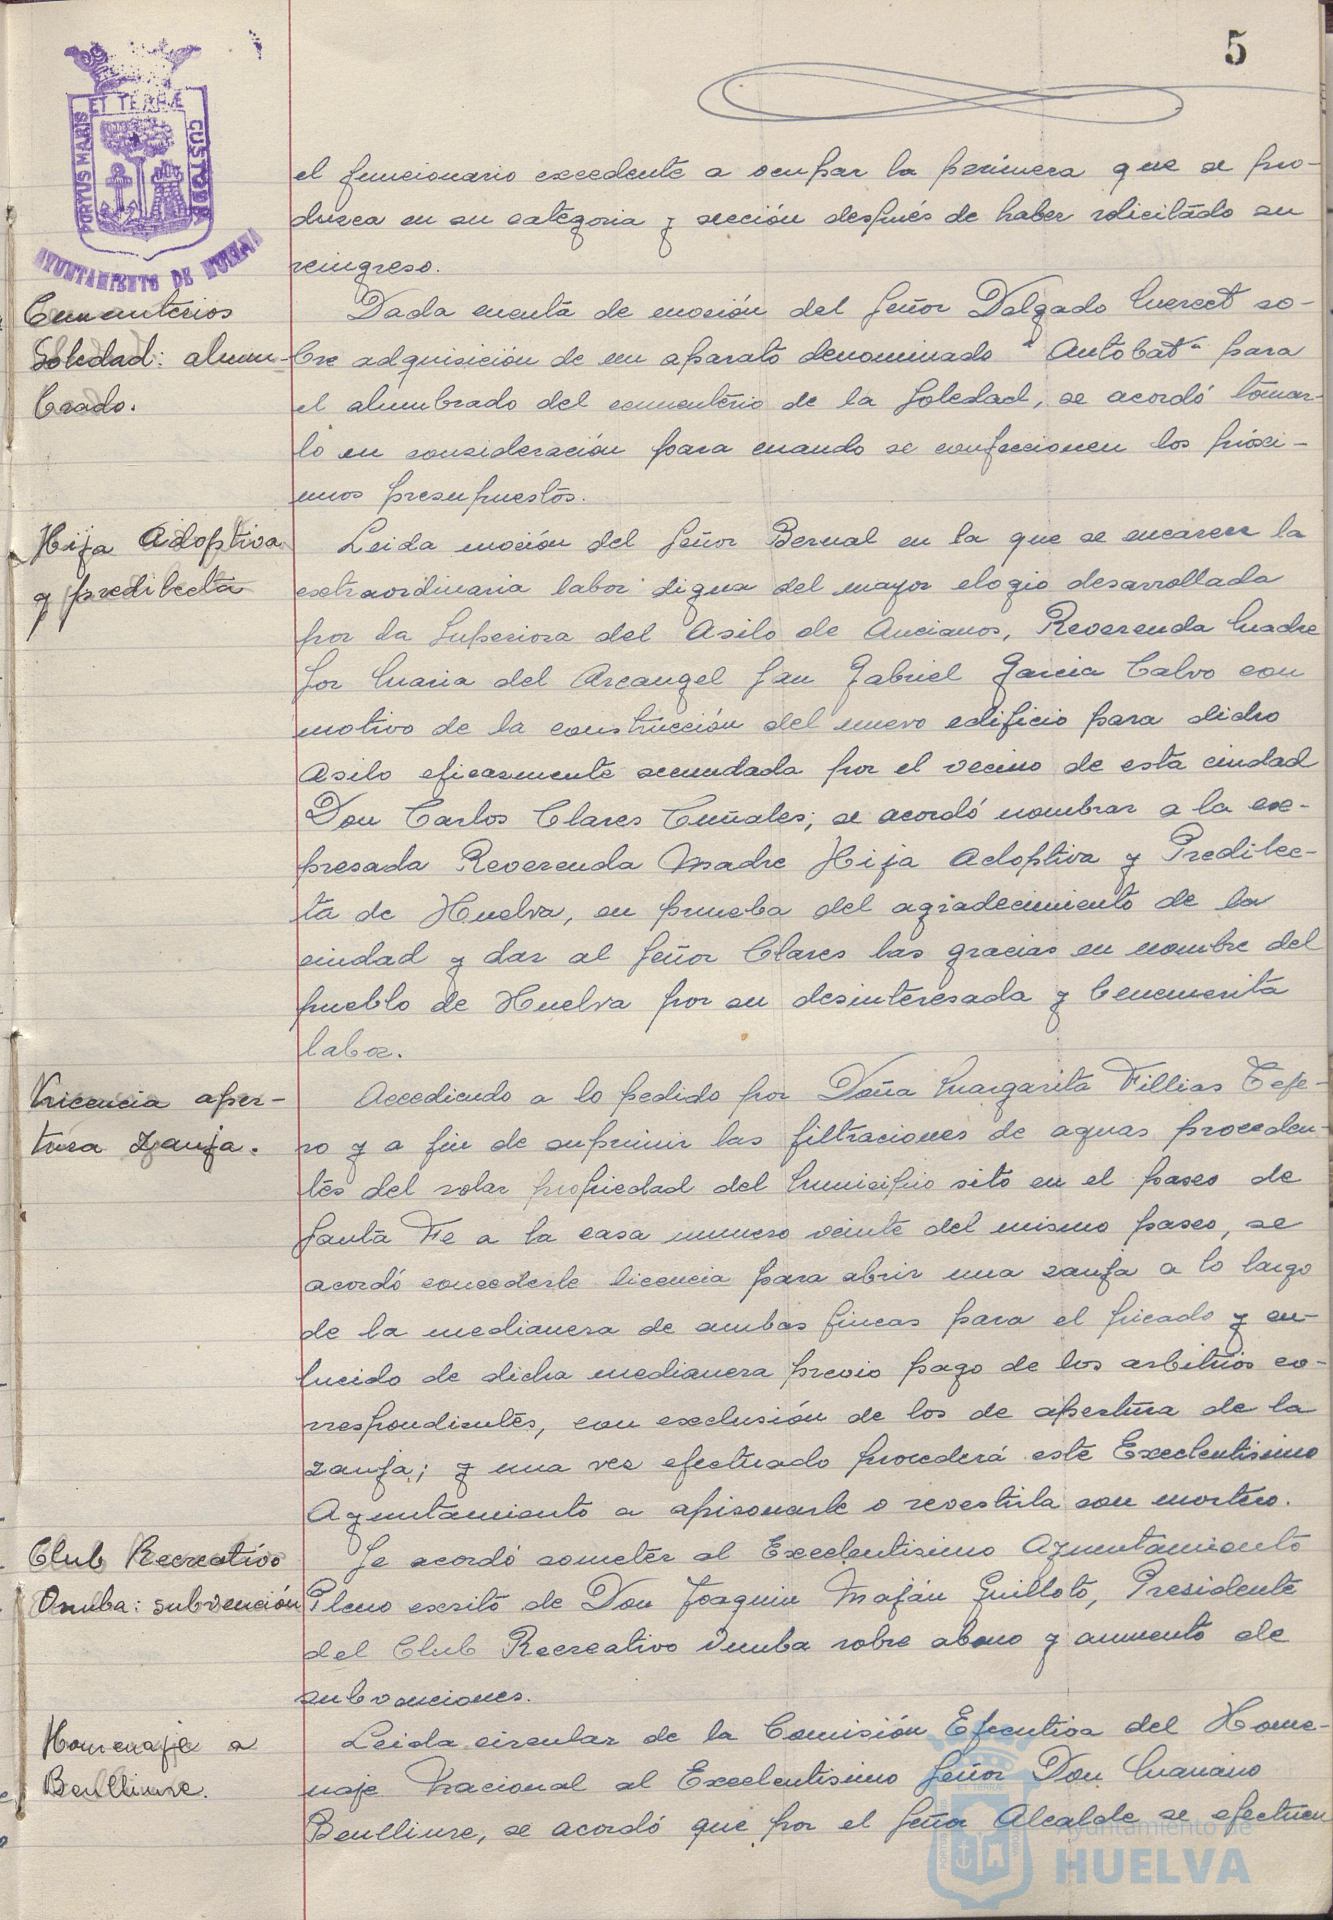 5
PORTUS MARIS ET TERRÆ CUSTODE
AYUNTAMIENTO DE HUELVA
el funcionario excedente a ocupar la primera que se pro-
duzca en su categoria y sección después de haber solicitado su
reingreso.
Cementerios
Soledad: alum-
brado.
Dada cuenta de moción del Señor Delgado Merect so-
bre adquisición de un aparato denominado "Autobat" para
el alumbrado del cementerio de la Soledad, se acordó tomar-
lo en consideración para cuando se confeccionen los próxi-
mos presupuestos.
Hija Adoptiva
y predilecta
Leida moción del Señor Bernal en la que se encarece la
extraordinaria labor digna del mayor elogio desarrollada
por la Superiora del Asilo de Ancianos, Reverenda Madre
Sor Maria del Arcangel San Gabriel Garcia Calvo con
motivo de la construcción del nuevo edificio para dicho
Asilo eficazmente secundada por el vecino de esta ciudad
Don Carlos Clares Cuñales; se acordó nombrar a la ex-
presada Reverenda Madre Hija Adoptiva y Predilec-
ta de Huelva, en prueba del agradecimiento de la
ciudad y dar al Señor Clares las gracias en nombre del
pueblo de Huelva por su desinteresada y benemerita
labor.
Licencia aper-
tura zanja.
Accediendo a lo pedido por Doña Margarita Fillias Teje-
ro y a fin de suprimir las filtraciones de aguas proceden-
tes del solar propiedad del Municipio sito en el paseo de
Santa Fe a la casa numero veinte del mismo paseo, se
acordó concederle licencia para abrir una zanja a lo largo
de la medianera de ambas fincas para el picado y en-
lucido de dicha medianera previo pago de los arbitrios co-
rrespondientes, con exclusión de los de apertura de la
zanja; y una vez efectuado procederá este Excelentisimo
Ayuntamiento a apisonarle o revestirla con mortero.
Club Recreativo
Onuba: subvención
Se acordó someter al Excelentisimo Ayuntamiento
Pleno escrito de Don Joaquin Maján Guilloto, Presidente
del Club Recreativo Onuba sobre abono y aumento de
subvenciones.
Homenaje a
Benlliure.
Leida circular de la Comisión Ejecutiva del Home-
naje Nacional al Excelentisimo Señor Don Mariano
Benlliure, se acordó que por el Señor Alcalde se efectuen
Ayuntamiento de
HUELVA